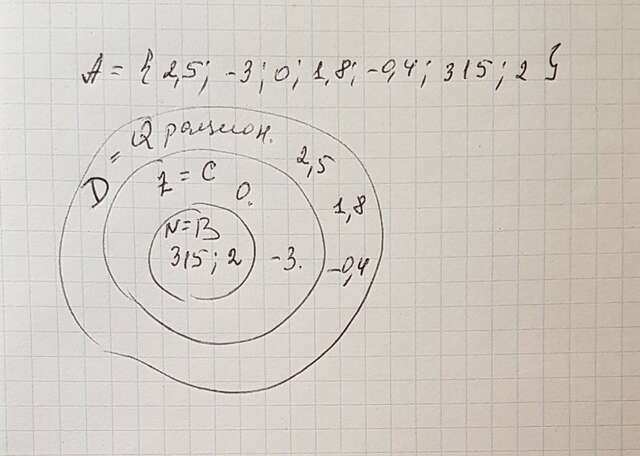 A = { 2,5; -3; 0; 1,8; -0,4; 315; 2 }
D = Q рацион.
2,5
Z = C
0.
1,8
N=B
315; 2
-3.
-0,4